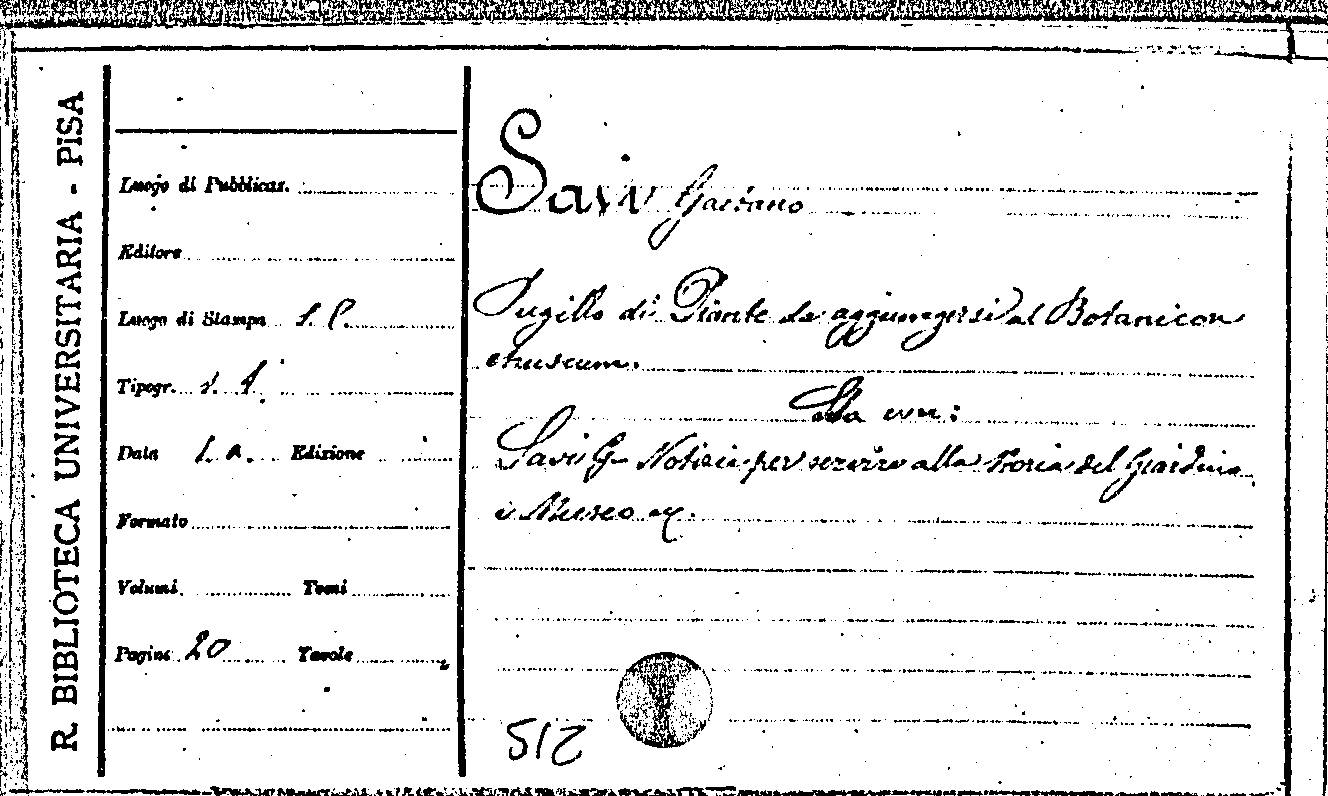 R. BIBLIOTECA UNIVERSITARIA - PISA
Luogo di Pubblicaz.
Editore
Luogo di Stampa s. l.
Tipogr. s. t.
Data s. a. Edizione
Formato
Volumi Tomi
Pagine 20 Tavole
Savi Gaetano
Pugillo di Piante da aggiungersi al Botanicon
etruscum.
Sta con:
Savi G. Notizie per servire alla storia del Giardino
e Museo ec.
512